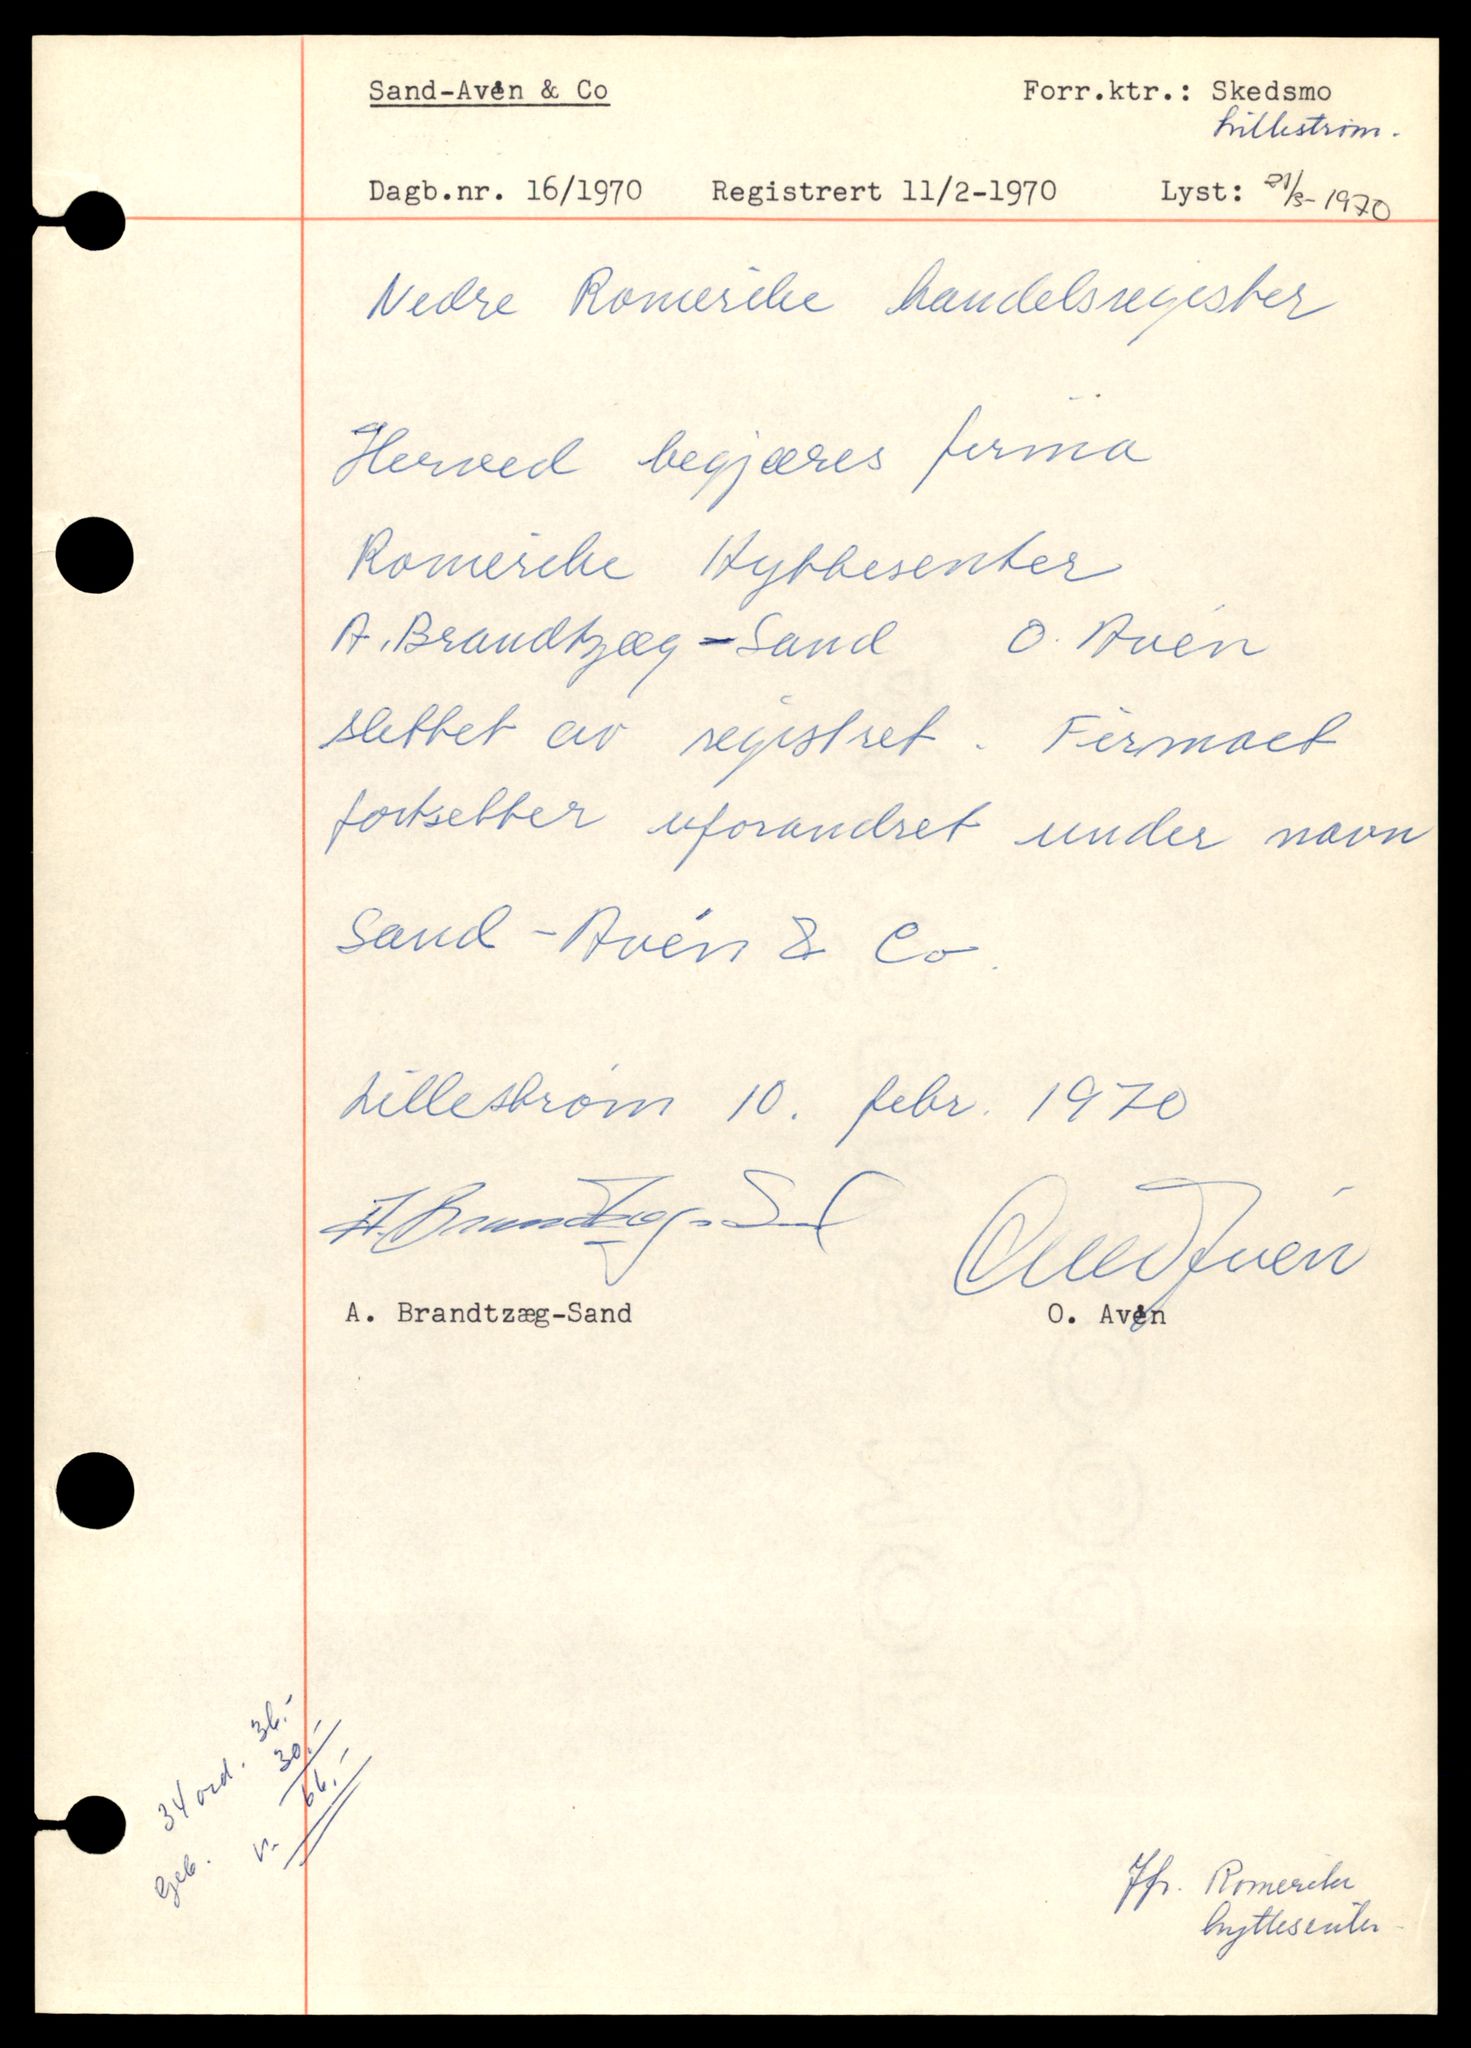 Sand-Avén & Co
Forr.ktr.: Skedsmo
Lillestrøm.
Dagb.nr. 16/1970 Registrert 11/2-1970 Lyst: 21/3-1970
Nedre Romerike handelsregister
Herved begjæres firma
Romerike Hyttesenter
A. Brandtzæg-Sand O. Avén
slettet av registret. Firmaet
fortsetter uforandret under navn
Sand-Avén & Co.
Lillestrøm 10. febr. 1970
A. Brandtzæg-Sand
A. Brandtzæg-Sand O. Avén
34 ord. 36.-
Geb. 30.-
66.-
Jfr. Romerike
hyttesenter